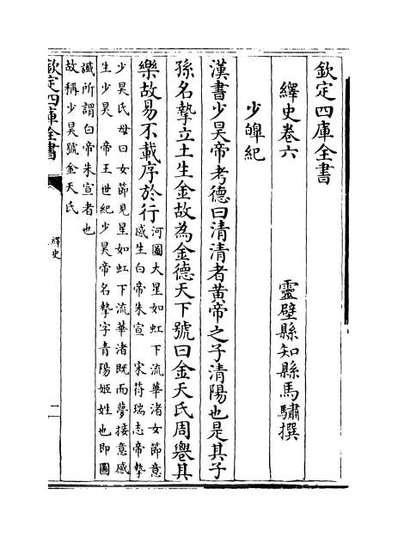 欽定四庫全書
繹史卷六 靈壁縣知縣馬驌撰
少皥紀
漢書少昊帝考德曰清清者黄帝之子清陽也是其子
孫名摯立土生金故為金德天下號曰金天氏周礜其
樂故易不載序於行
河圖大星如虹下流華渚女節意
感生白帝朱宣 宋符瑞志帝摯
少昊氏母曰女節見星如虹下流華渚既而夢接意感
生少昊 帝王世紀少昊帝名摯字青陽姬姓也即圖
讖所謂白帝朱宣者也
故稱少昊號金天氏
欽定四庫全書
繹史